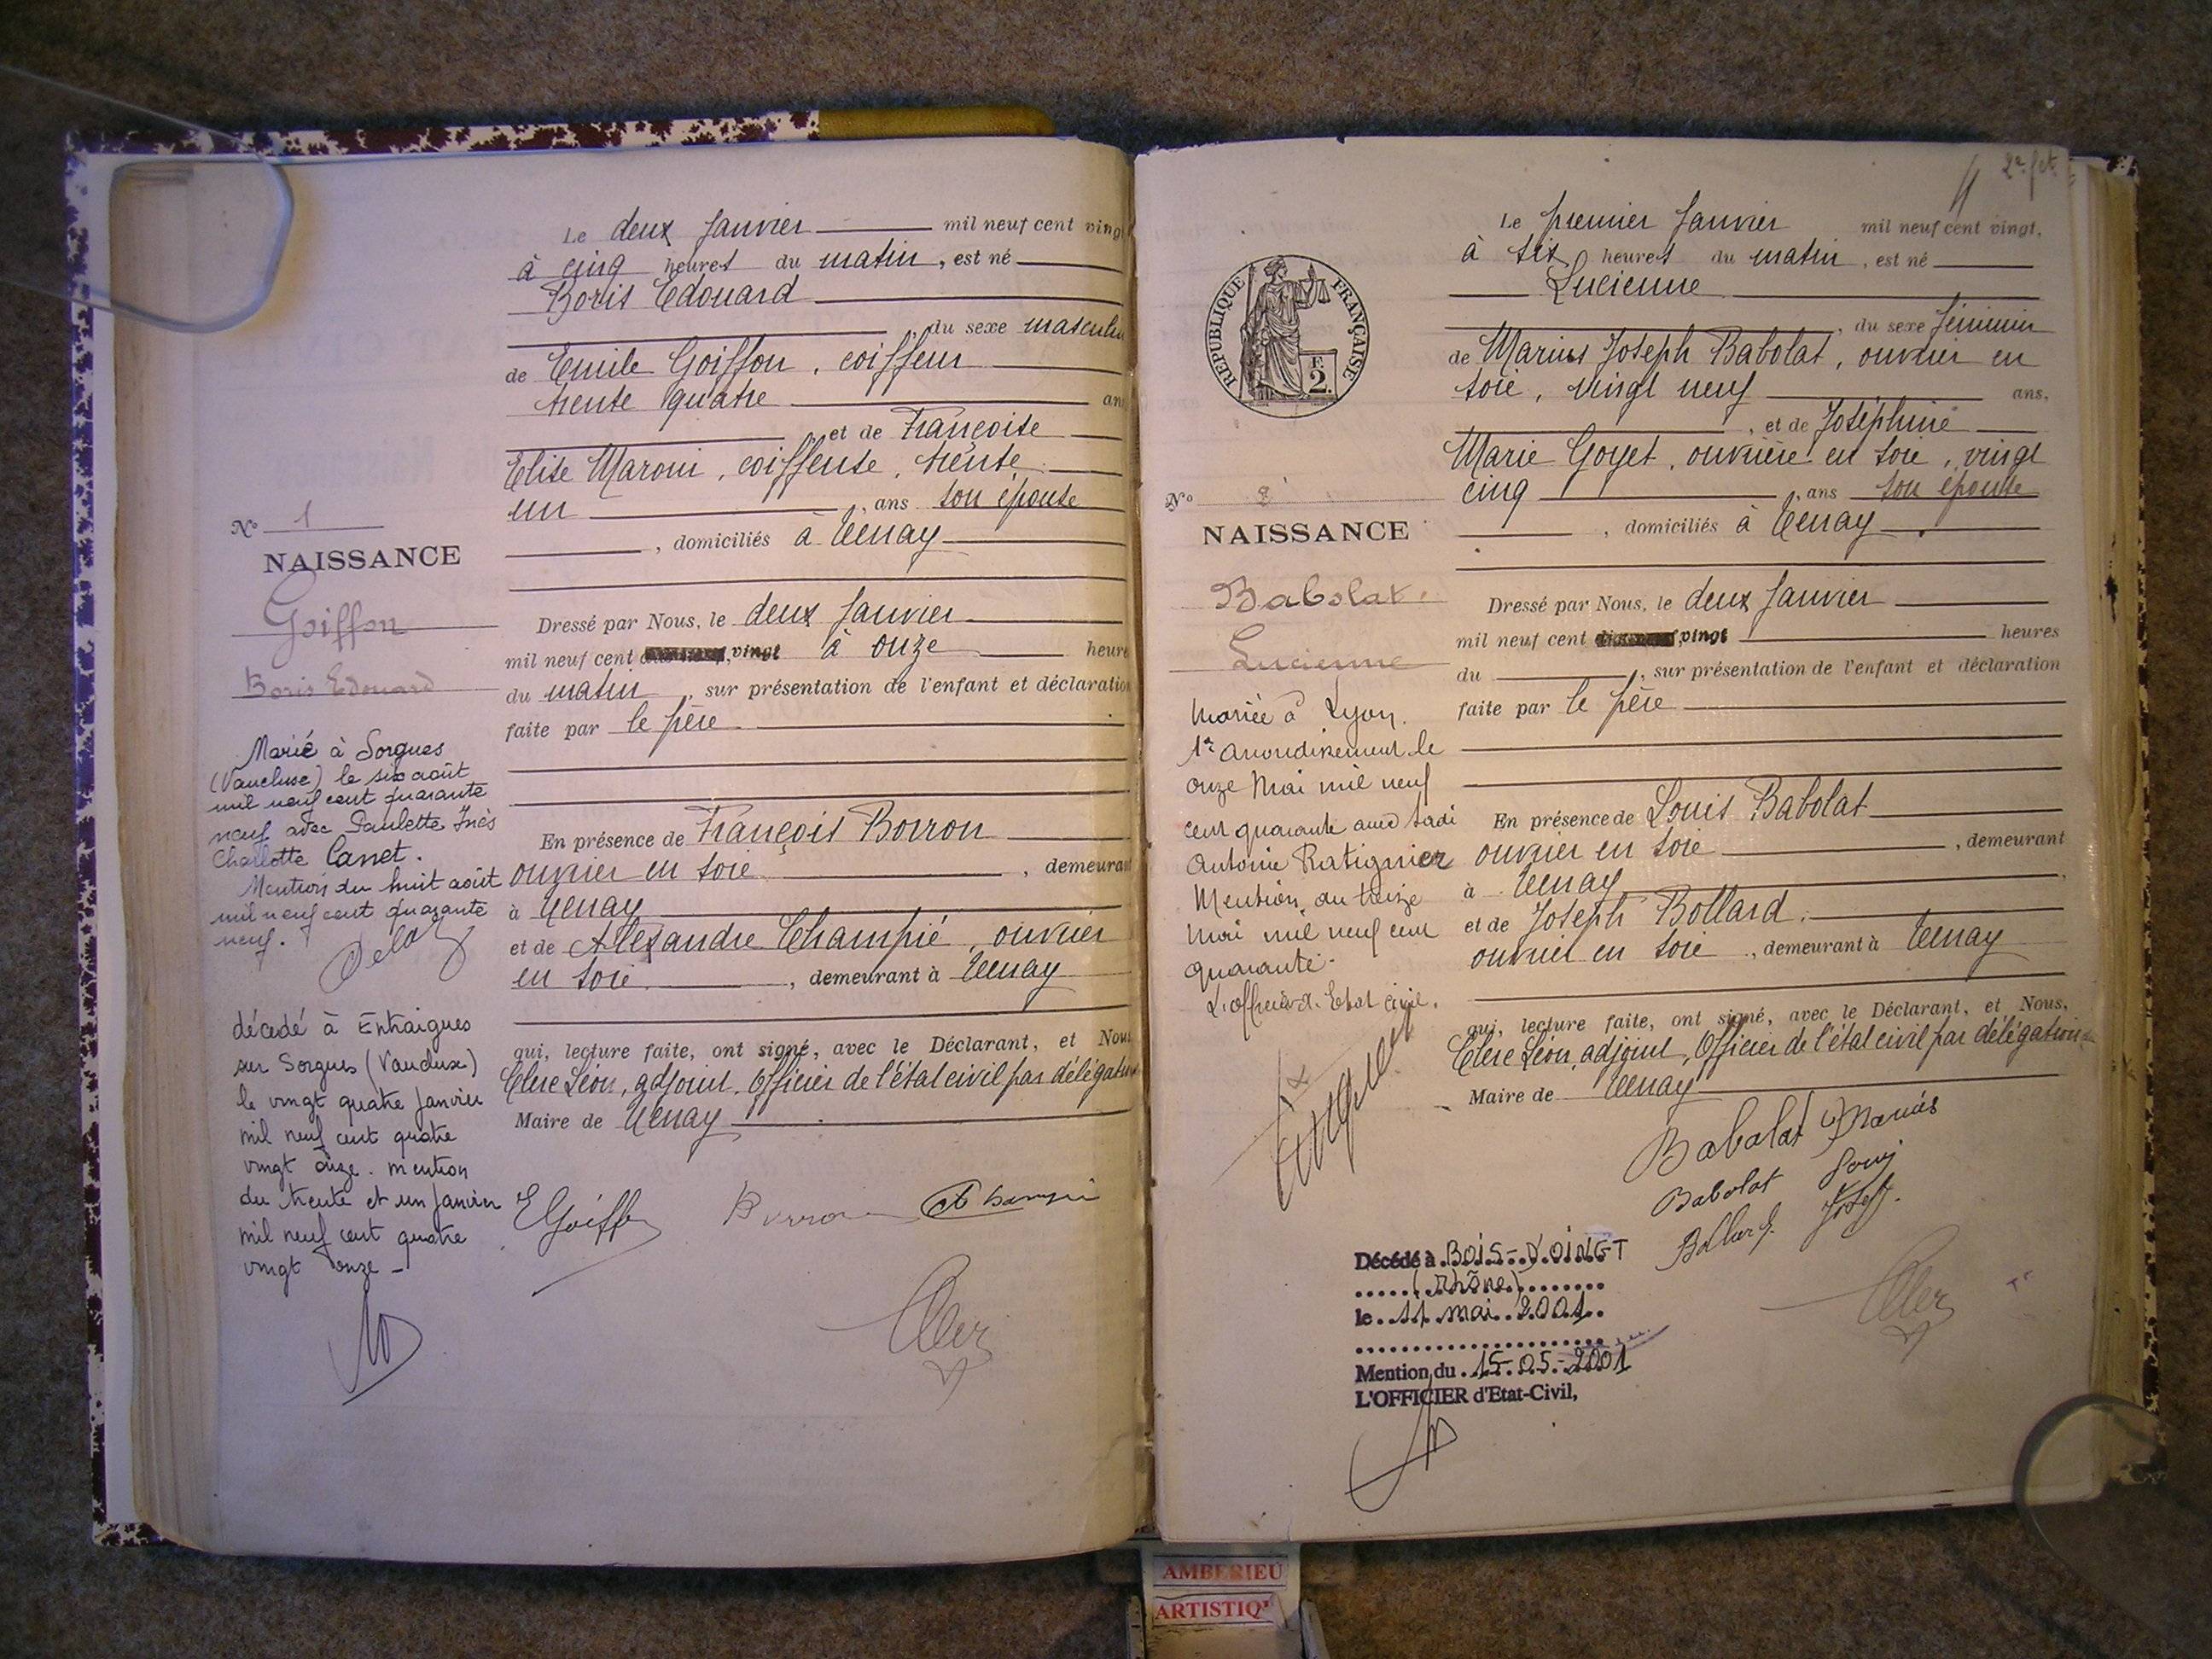 Le deux Janvier mil neuf cent vingt
à cinq heures du matin, est né
Boris Edouard
, du sexe masculin
de Emile Goiffon, coiffeur
trente quatre ans
, et de Françoise
Elise Maroni, coiffeuse, trente
un , ans son épouse
, domiciliés à Tenay
Dressé par Nous, le deux Janvier
mil neuf cent vingt à onze heures
du matin, sur présentation de l'enfant et déclaration
faite par le père
En présence de François Borron
ouvrier en soie , demeurant
à Tenay
et de Alexandre Champié, ouvrier
en soie , demeurant à Tenay
qui, lecture faite, ont signé, avec le Déclarant, et Nous
Clerc Léon, adjoint, Officier de l'état civil par délégation
Maire de Tenay
EGoiffon
Borron
Champié
Clerc
N° 1
NAISSANCE
Goiffon
Boris Edouard
Marié à Sorgues
(Vaucluse) le six août
mil neuf cent quarante
neuf avec Paulette Inès
Charlotte Canet.
Mention du huit août
mil neuf cent quarante
neuf.
décédé à Entraigues
sur Sorgues (Vaucluse)
le vingt quatre Janvier
mil neuf cent quatre
vingt onze. mention
du trente et un Janvier
mil neuf cent quatre
vingt onze -
Le premier Janvier mil neuf cent vingt,
à six heures du matin, est né
Lucienne
, du sexe féminin
de Marius Joseph Babolat, ouvrier en
soie, vingt neuf ans,
, et de Joséphine
Marie Goyet, ouvrière en soie, vingt
cinq , ans son épouse
, domiciliés à Tenay
Dressé par Nous, le deux Janvier
mil neuf cent vingt heures
du , sur présentation de l'enfant et déclaration
faite par le père
En présence de Louis Babolat
ouvrier en soie , demeurant
à Tenay
et de Joseph Bollard,
ouvrier en soie , demeurant à Tenay
qui, lecture faite, ont signé, avec le Déclarant, et Nous,
Clerc Léon, adjoint, Officier de l'état civil par délégation
Maire de Tenay
Babolat Marius
Babolat Louis
Bollard Joseph
Clerc
RÉPUBLIQUE FRANÇAISE
F.
2.
N° 2
NAISSANCE
Babolat
Lucienne
Mariée à Lyon
1er arrondissement le
onze Mai mil neuf
cent quarante avec Sadi
Antoine Ratignier
Mention du treize
Mai mil neuf cent
quarante.
L'officier d. Etat civil.
Décédé à BOIS-D'OINGT
(Rhône)
le 11 mai 2001
Mention du 15-05-2001
L'OFFICIER d'Etat-Civil,
AMBERIEU
ARTISTIQ